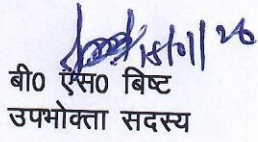 15/01/26
बी0 एस0 बिष्ट
उपभोक्ता सदस्य